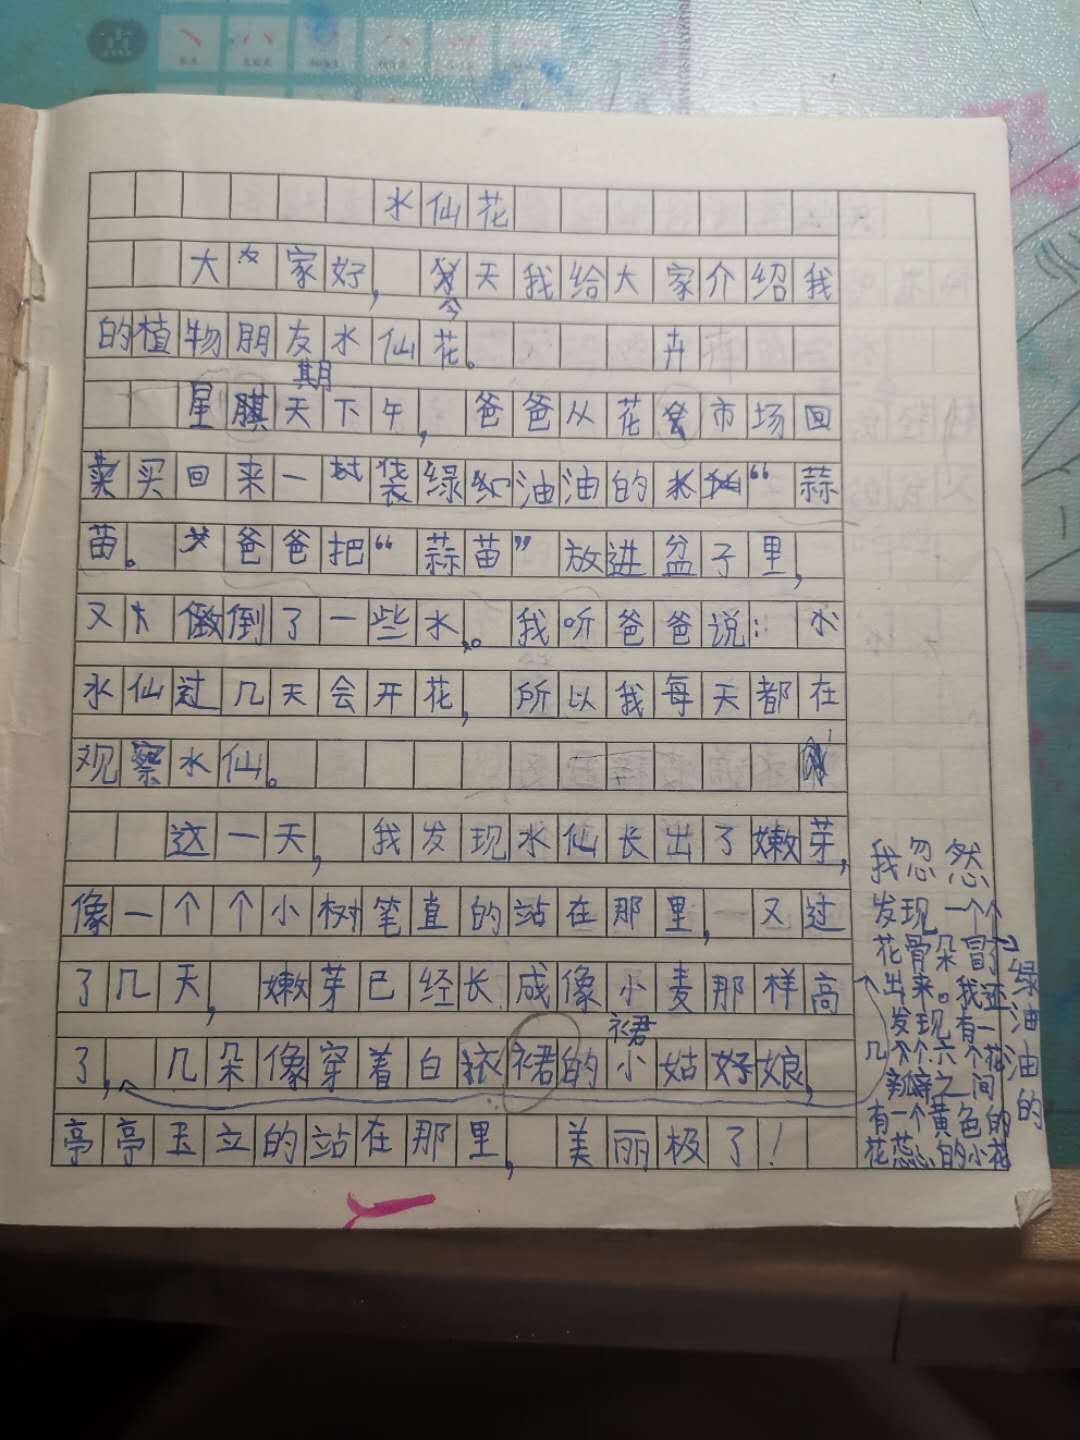 水仙花
大家好，今天我给大家介绍我
的植物朋友水仙花。
星期天下午，爸爸从花卉市场回
买回来一袋绿油油的“蒜
苗。爸爸把“蒜苗”放进盆子里，
又倒了一些水。我听爸爸说：
水仙过几天会开花，所以我每天都在
观察水仙。
这一天，我发现水仙长出了嫩芽，
像一个个小树笔直的站在那里，又过
了几天，嫩芽已经长成像小麦那样高
了，几朵像穿着白裙的小姑娘，
亭亭玉立的站在那里，美丽极了！
我忽然
发现一个个
花骨朵冒了
出来。我还
发现有一
几个六个花
瓣之间
有一个黄色的
花蕊的小花
绿油油的